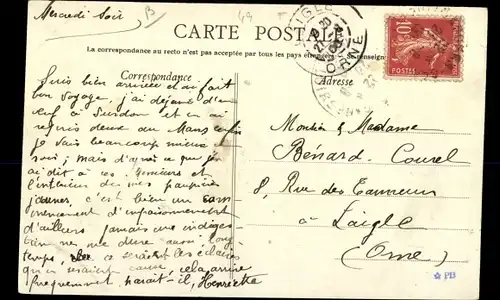 Mercredi Soir
CARTE POSTALE
La correspondance au recto n'est pas acceptée par tous les pays étrangers
Correspondance
Adresse
Suis bien arrivée et au fait
bon voyage, j'ai déjeuné d'un
œuf à Surdon et en ai
repris deux au Mans enfin
je vais beaucoup mieux ce
soir; mais d'après ce que
ai dit à ces Messieurs et
l'intérieur de mes paupières
jaunes, c'est bien un com
mencement d'empoisonnement
d'ailleurs jamais une indiges
tion ne me dure aussi long
temps, ce seraient les éclairs
qui seraient cause, cela arrive
fréquemment paraît-il, Henriette
Monsieur & Madame
Bénard-Courel
8, Rue des Tanneurs
à Laigle
(Orne)
10
POSTES
ORNE
PB